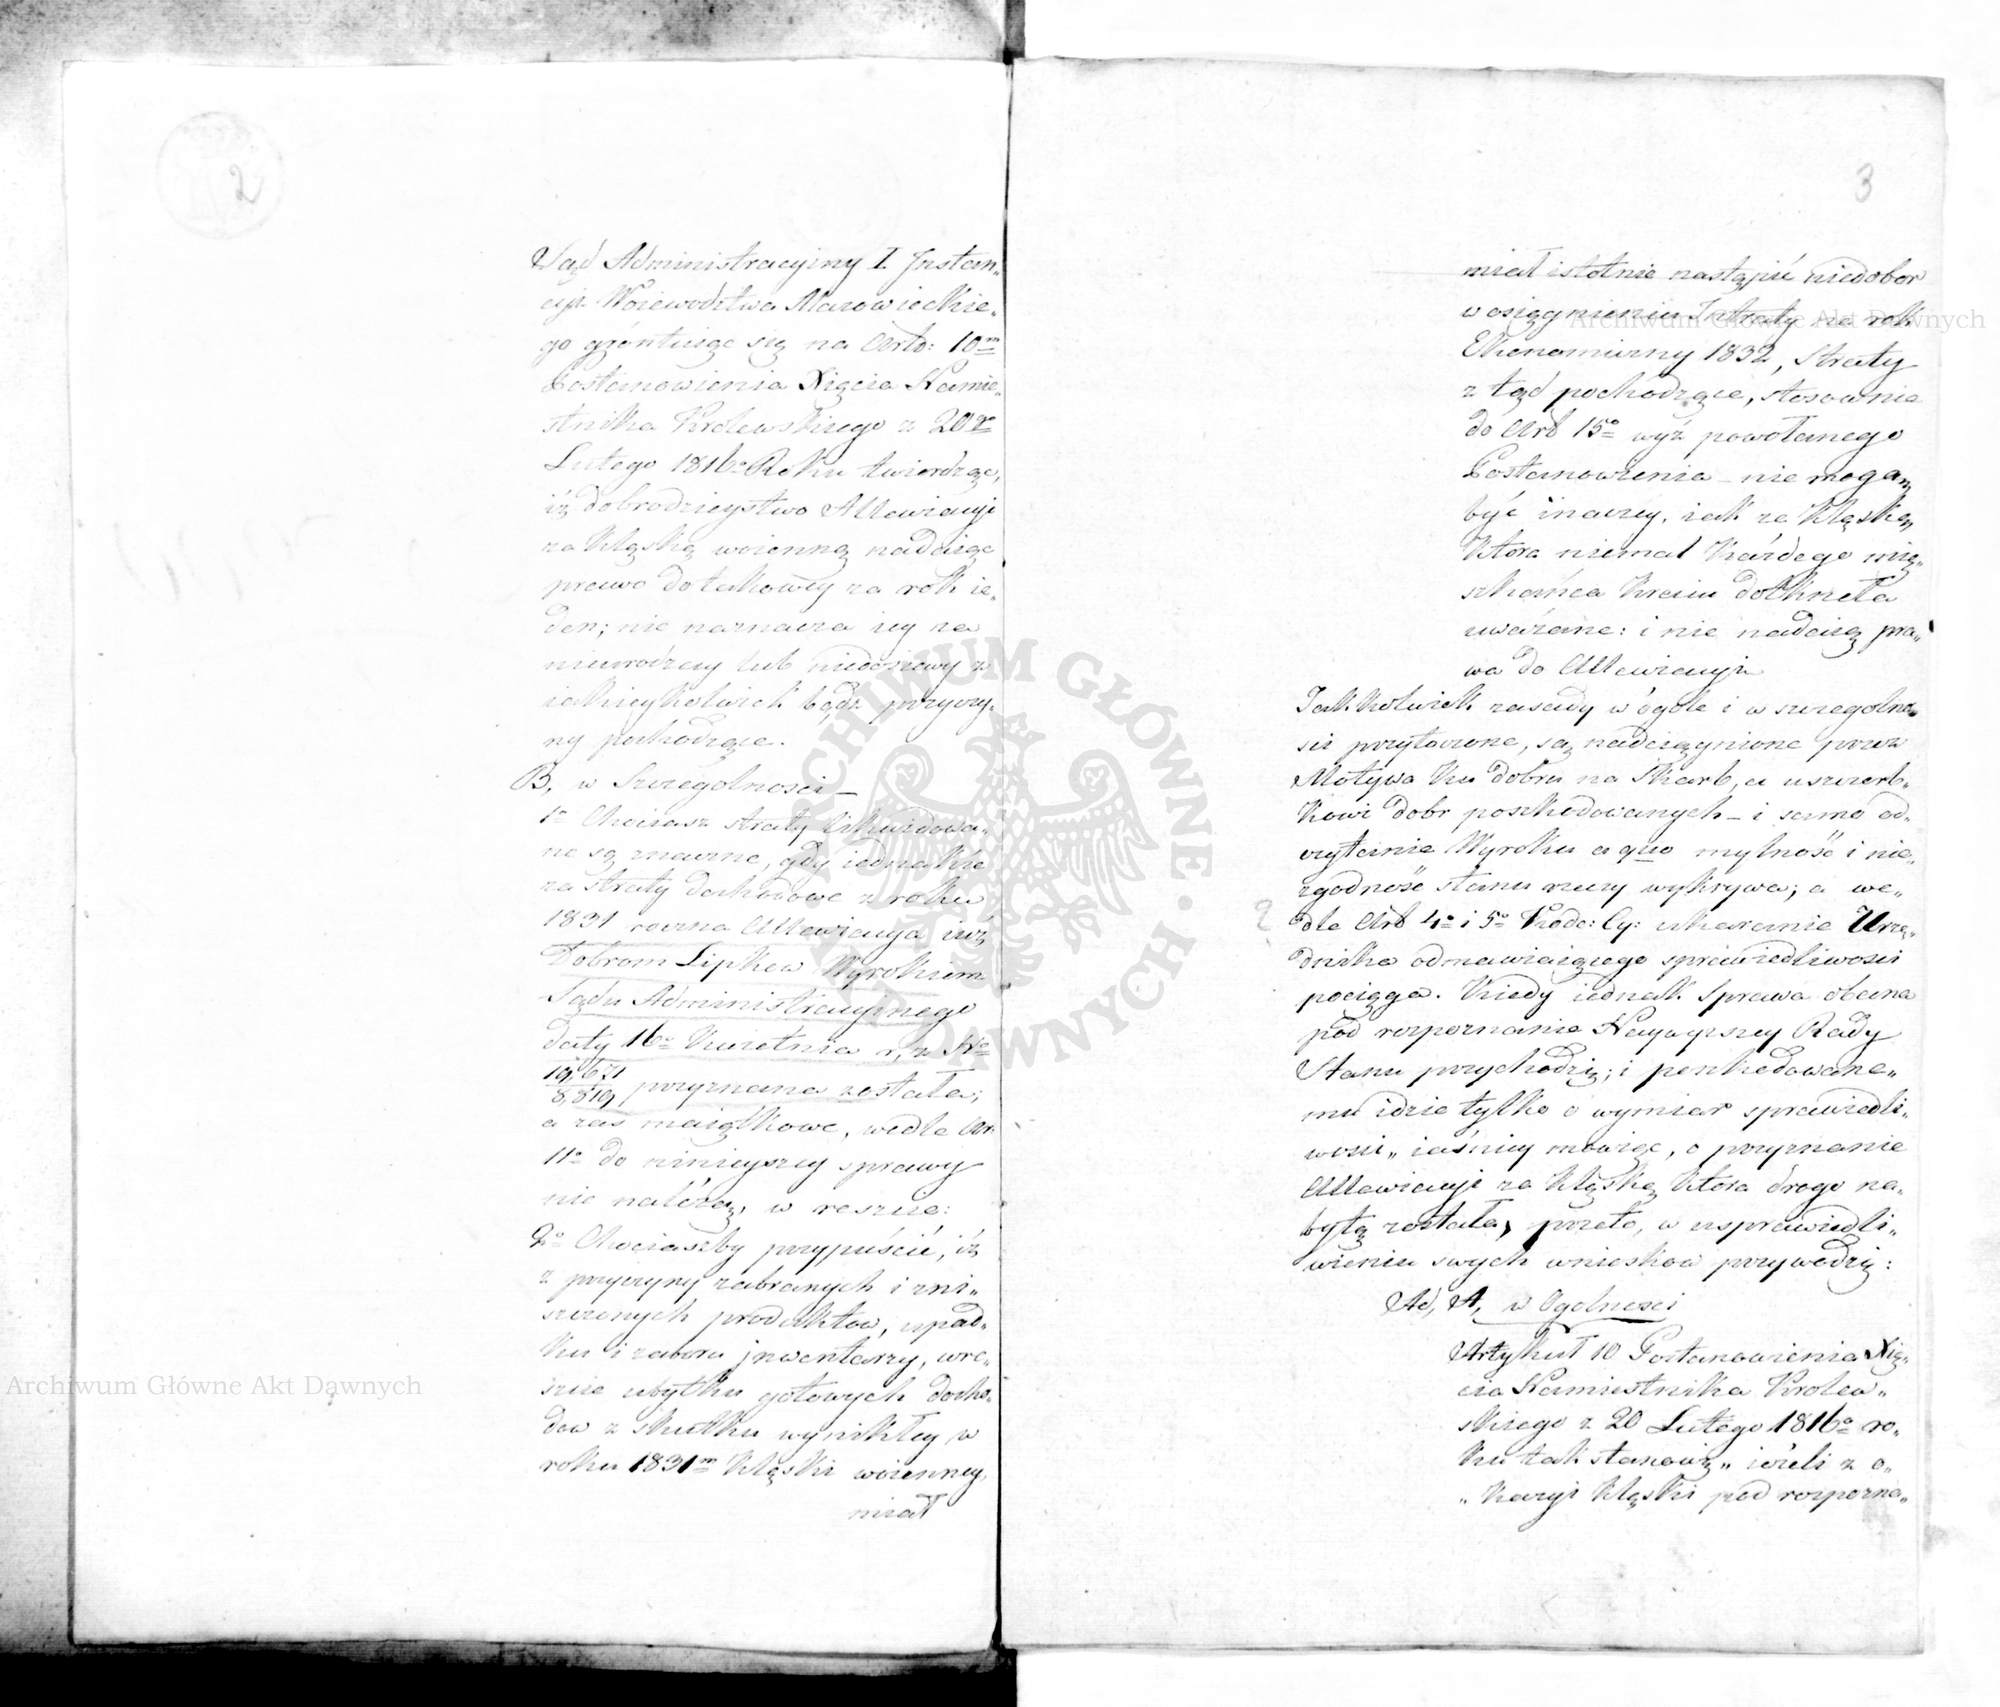 2
Sąd Administracyiny I Instan„
cyi Woiewodztwa Mazowieckie„
go gróntuiąc się na Arto: 10m
Postanowienia Xięcia Namie„
stnika Krolewskiego z 20go
Lutego 1816o Roku twierdząc,
iż dobrodzieystwo Allewiacyi
za klęskę woienną nadaiąc
prawo do takowey za rok ie„
den; nie naznacza iey na
nieurodzay lub niedosiewy z
iakieykolwiek bądz przyczy„
ny pochodzące.
B, w Szczegolnosci –
1o Chociasz straty likwidowa„
ne są znaczne, gdy iednakże
za straty dochodowe z roku
1831 rowna Allewiacya iuż
Dobrom Lipkow Wyrokiem
Sądu Administracyinego
daty 16o Kwietnia r, z No
19,671/8,819 przyznana została;
a zas maiątkowe, wedle Ar
11o do ninieyszey sprawy
nie należą, w reszcie:
2o Chociaszby przypuścić, iż
z przyczyny zabranych i zni„
szczonych produktow, upad„
ku i zaboru jnwentarzy, wre„
szcie ubytku gotowych docho„
dow z skutku wynikłey w
roku 1831m klęski woienney,
miał
3
miał istotnie nastąpić niedobor
w osiągnieniu Intraty na rok
Ekonomiczny 1832, straty
z tąd pochodzące, stosownie
do Art 15o wyż powołanego
Postanowienia – nie mogą
być inaczey, iak za klęskę,
ktora niemal każdego mię„
szkańca kraiu dotknęła
uważane: i nie nadaią pra„
wa do Allewiacyi
Jakkolwiek zasady w ogole i w szczegolno„
sci przytoczone, są nadciągnione przez
Motywa ku dobru na Skarb, a uszczerb„
kowi dobr poszkodowanych – i samo od„
czytanie Wyroku a quo mylność i nie„
zgodność stanu rzeczy wykrywa; a we„
dle Art 4o i 5o Kode: Cy: ukaranie Urzę„
dnika odmawiaiącego sprawiedliwosci
pociąga. Kiedy iednak sprawa obecna
pod rozpoznanie Naywyzszey Rady
Stanu przychodzi; i poszkodowane„
mu idzie tylko o wymiar sprawiedli„
wosci„ iaśniey mowiąc, o przyznanie
Allewiacyi za klęskę ktora drogo na„
bytą została, przeto, w usprawiedli„
wieniu swych wnioskow przywodzi:
Ad, A, w Ogolnosci
Artykuł 10 Postanowienia Xię„
cia Namiestnika Krolew„
skiego z 20 Lutego 1816o ro„
ku tak stanowi„ ieżeli z o„
„ kazyi klęski pod rozpozna„
Archiwum Główne Akt Dawnych
Archiwum Główne Akt Dawnych
ARCHIWUM GŁÓWNE AKT DAWNYCH